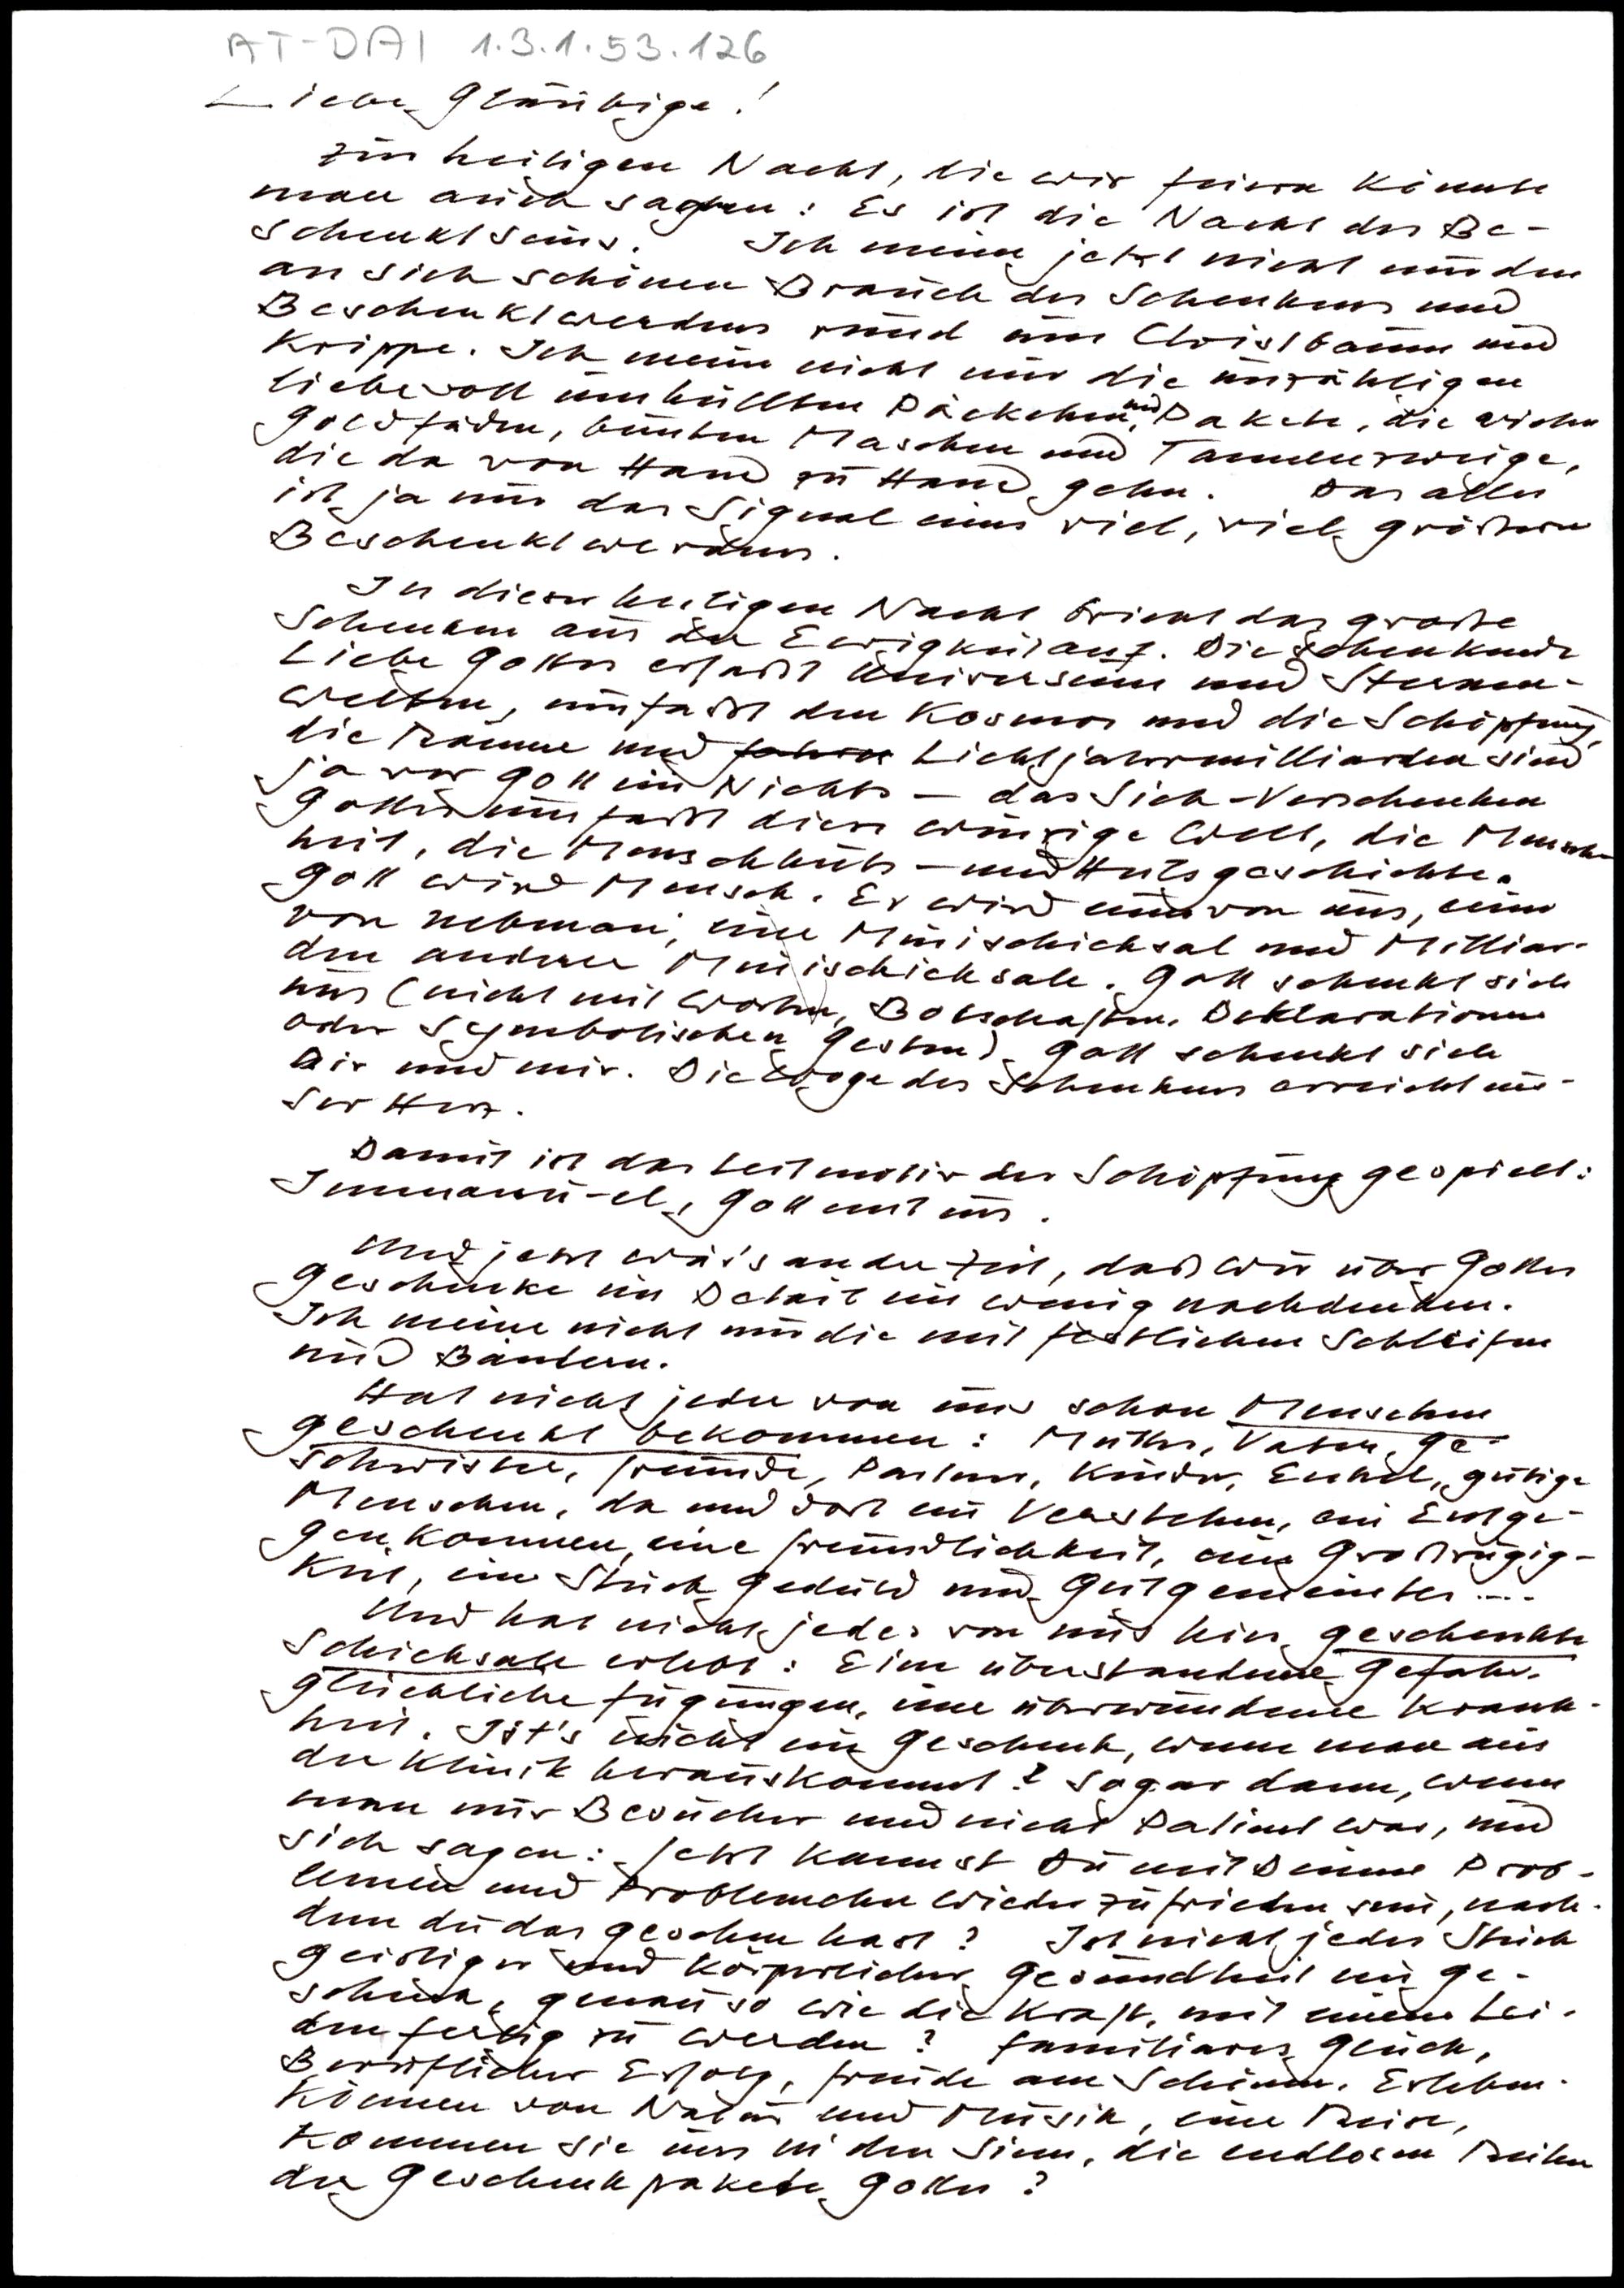 AT-DAI 1.3.1.53.126
Liebe Gläubige!
Zur heiligen Nacht, die wir feiern könnte
man auch sagen: Es ist die Nacht des Be-
schenktseins. Ich meine jetzt nicht nur den
an sich schönen Brauch des Schenkens und
Beschenktwerdens rund um Christbaum und
Krippe. Ich meine nicht nur die unzähligen
liebevoll umhüllten Päckchen und Pakete, die vielen
Goldfäden, bunten Maschen und Tannenzweige,
die da von Hand zu Hand gehn. Das alles
ist ja nur das Signal eines viel, viel größern
Beschenktwerdens.
In dieser heutigen Nacht bricht das große
Schenken aus der Ewigkeit auf. Die schenkende
Liebe Gottes erfaßt Universum und Sternen-
welten, umfaßt den Kosmos und die Schöpfung,
die Räume und Lichtjahrmilliarden sind
ja vor Gott ein Nichts – das Sich-Verschenken
Gottes umfaßt diese winzige Welt, die Mensch-
heit, die Menschheits- und Heilsgeschichte.
Gott wird Mensch. Er wird einer von uns, einer
von nebenan, ein Minischicksal und Milliar-
den anderer Minischicksale. Gott schenkt sich
uns (nicht mit Worten, Botschaften, Deklarationen
oder symbolischen Gesten) Gott schenkt sich
Dir und mir. Die Woge des Schenkens erreicht un-
ser Herz.
Damit ist das Leitmotiv der Schöpfung gespielt:
Immanu-el, Gott mit uns.
Und jetzt wär's an der Zeit, daß wir über Gottes
Geschenke im Detail ein wenig nachdenken.
Ich meine nicht nur die mit festlichen Schleifen
und Bändern.
Hat nicht jeder von uns schon Menschen
geschenkt bekommen: Mutter, Vater, Ge-
schwister, Freunde, Partner, Kinder, Enkel, gütige
Menschen, da und dort ein Verstehen, ein Entge-
genkommen, eine Freundlichkeit, eine Großzügig-
keit, ein Stück Geduld und Gutgemeintes ....
Und hat nicht jeder von uns hier geschenkte
Schicksale erlebt: Eine überstandene Gefahr.
Glückliche Fügungen, eine überwundene Krank-
heit. Ist's nicht ein Geschenk, wenn man aus
der Klinik herauskommt? Sogar dann, wenn
man nur Besucher und nicht Patient war, und
sich sagen: Jetzt kannst Du mit Deinen Prob-
lemen und Problemchen wieder zufrieden sein, nach-
dem du das gesehen hast? Ist nicht jedes Stück
geistiger und körperlicher Gesundheit ein Ge-
schenk, genau so wie die Kraft, mit einem Lei-
den fertig zu werden? Familiäres Glück,
Beruflicher Erfolg, Freude am Schönen. Erleben-
können von Natur und Musik, eine Reise,
Kommen sie uns in den Sinn, die endlosen Reihen
der Geschenkpakete Gottes?